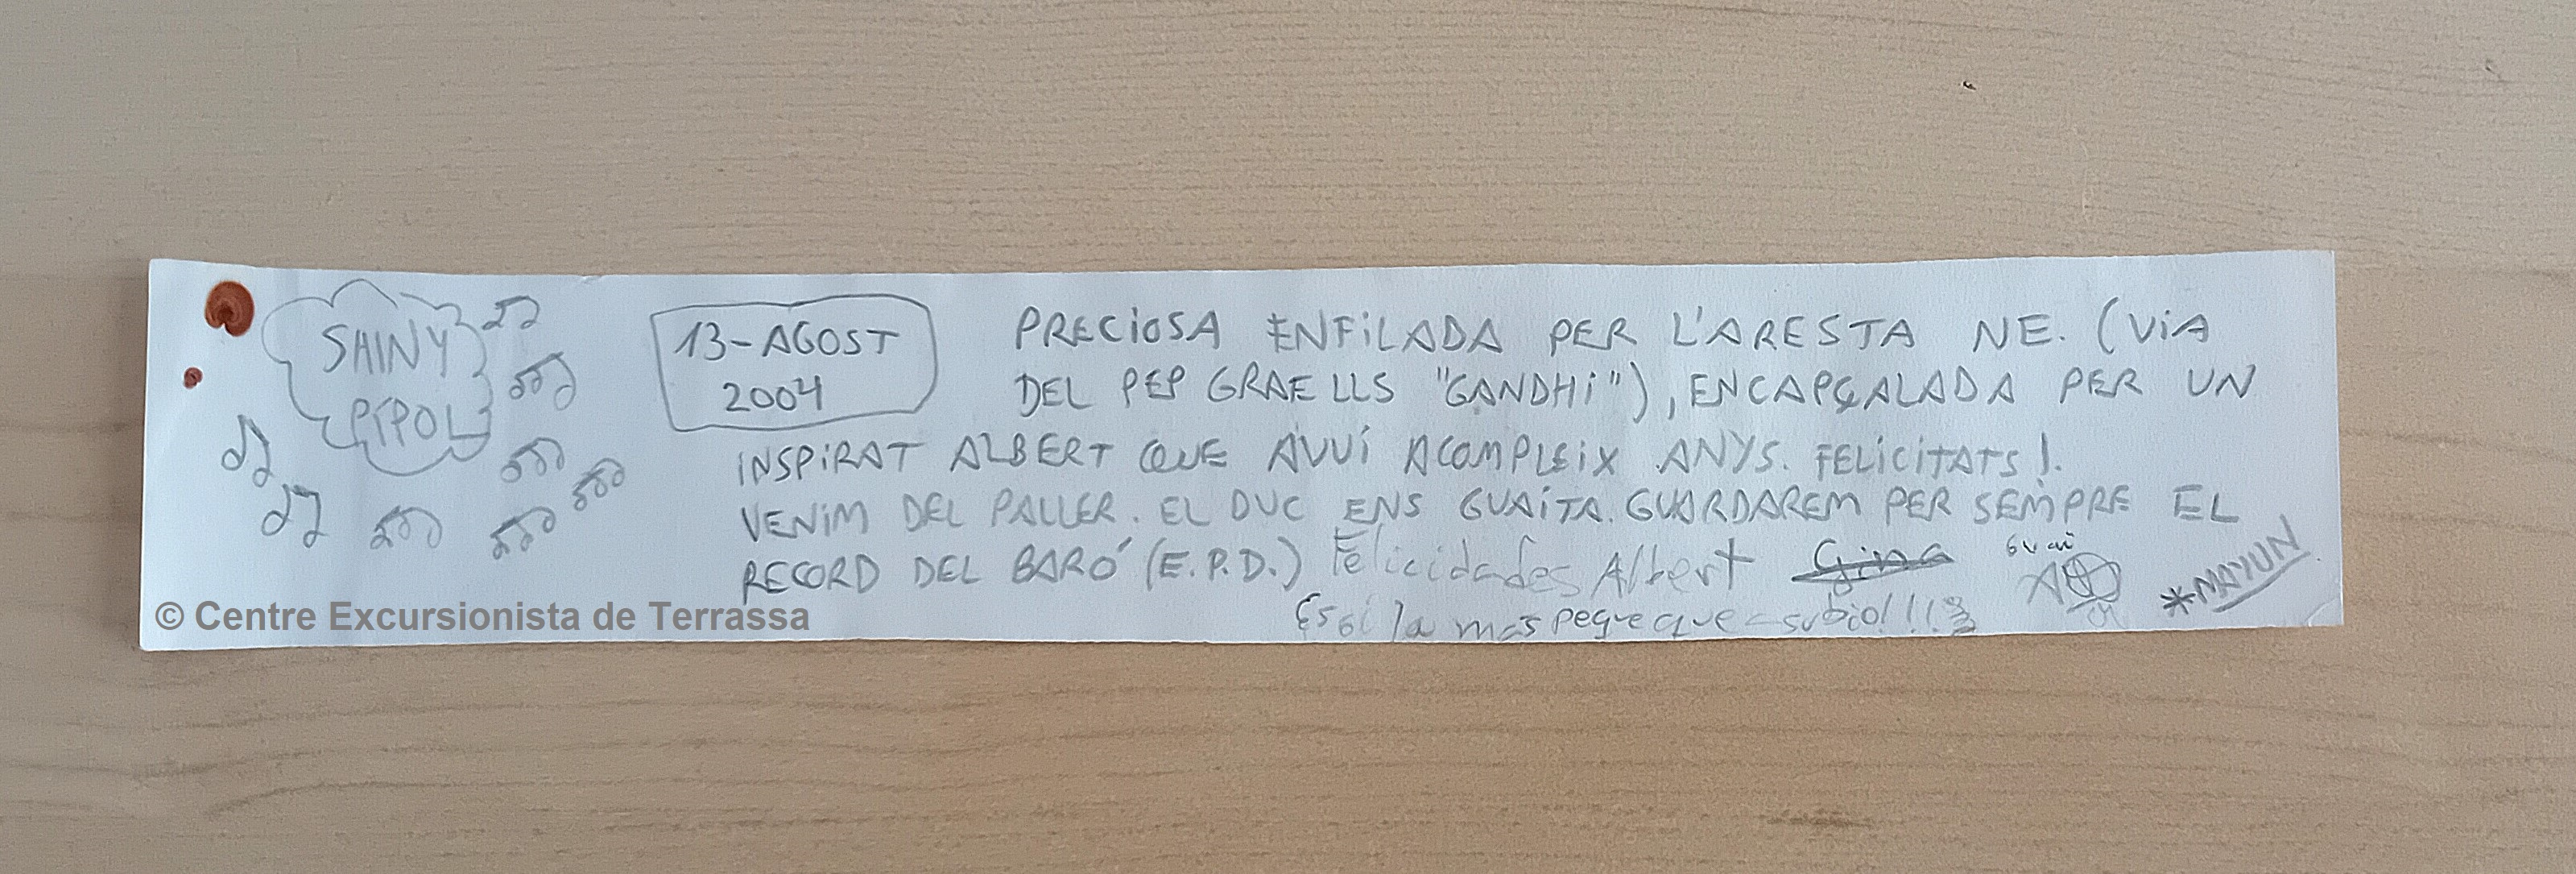 SHINY
PIPOL
13-AGOST
2004
PRECIOSA ENFILADA PER L'ARESTA NE. (VIA
DEL PEP GRAELLS "GANDHI"), ENCAPÇALADA PER UN
INSPIRAT ALBERT QUE AVUÍ ACOMPLEIX ANYS. FELICITATS!.
VENIM DEL PALLER. EL DUC ENS GUAITA. GUARDAREM PER SEMPRE EL
RECORD DEL BARÓ (E.P.D.) Felicidades Albert Gina
la mas peque que subio!!!
*MAYUN
© Centre Excursionista de Terrassa